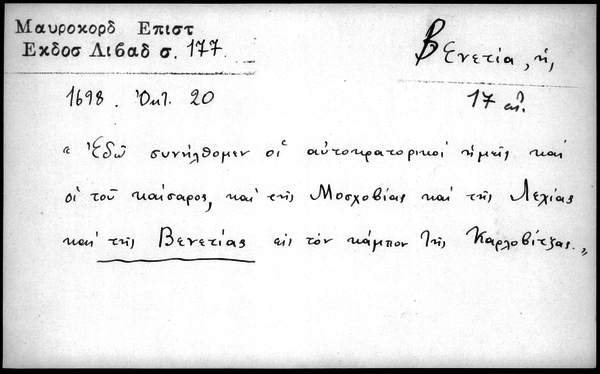 Μαυροκορδ Επιστ
Εκδοσ Λιβαδ σ. 177.
Βενετία, ἡ,
17 αἰ.
1698. Ὀκτ. 20
« Ἐδῶ συνήλθομεν οἱ αὐτοκρατορικοί ἡμεῖς καί
οἱ τοῦ καίσαρος, καί τῆς Μοσχοβίας καί τῆς Λεχίας
καί τῆς Βενετίας εἰς τόν κάμπον τῆς Καρλοβίτζας. »